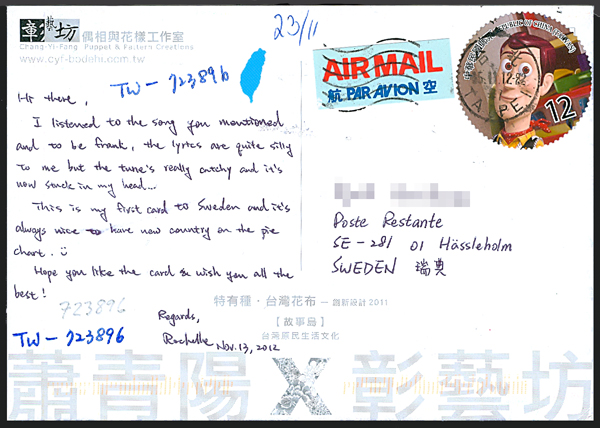 彰藝坊 偶相與花樣工作室
Chang-Yi-Fang Puppet & Pattern Creations
www.cyf-bodehi.com.tw
23/11
AIR MAIL
航 PAR AVION 空
REPUBLIC OF CHINA
12
TAIPEI
TW-723896
Hi there,
I listened to the song you mentioned
and to be frank, the lyrics are quite silly
to me but the tune's really catchy and it's
now stuck in my head...
This is my first card to Sweden and it's
always nice to have new country on the pie
chart. :)
Hope you like the card & wish you all the
best!
Regards,
Rochelle Nov.13, 2012
723896
TW-723896
Poste Restante
SE-281 01 Hässleholm
SWEDEN 瑞典
特有種・台灣花布 — 創新設計 2011
【故事島】
台灣原民生活文化
蕭青陽 X 彰藝坊